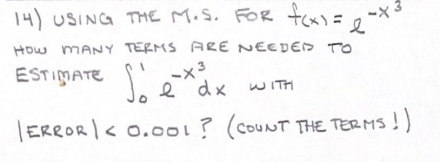 14) USING THE M.S. FOR f(x) = e^-x^3
HOW MANY TERMS ARE NEEDED TO
ESTIMATE ∫_0^1 e^-x^3 dx WITH
|ERROR| < 0.001? (COUNT THE TERMS!)